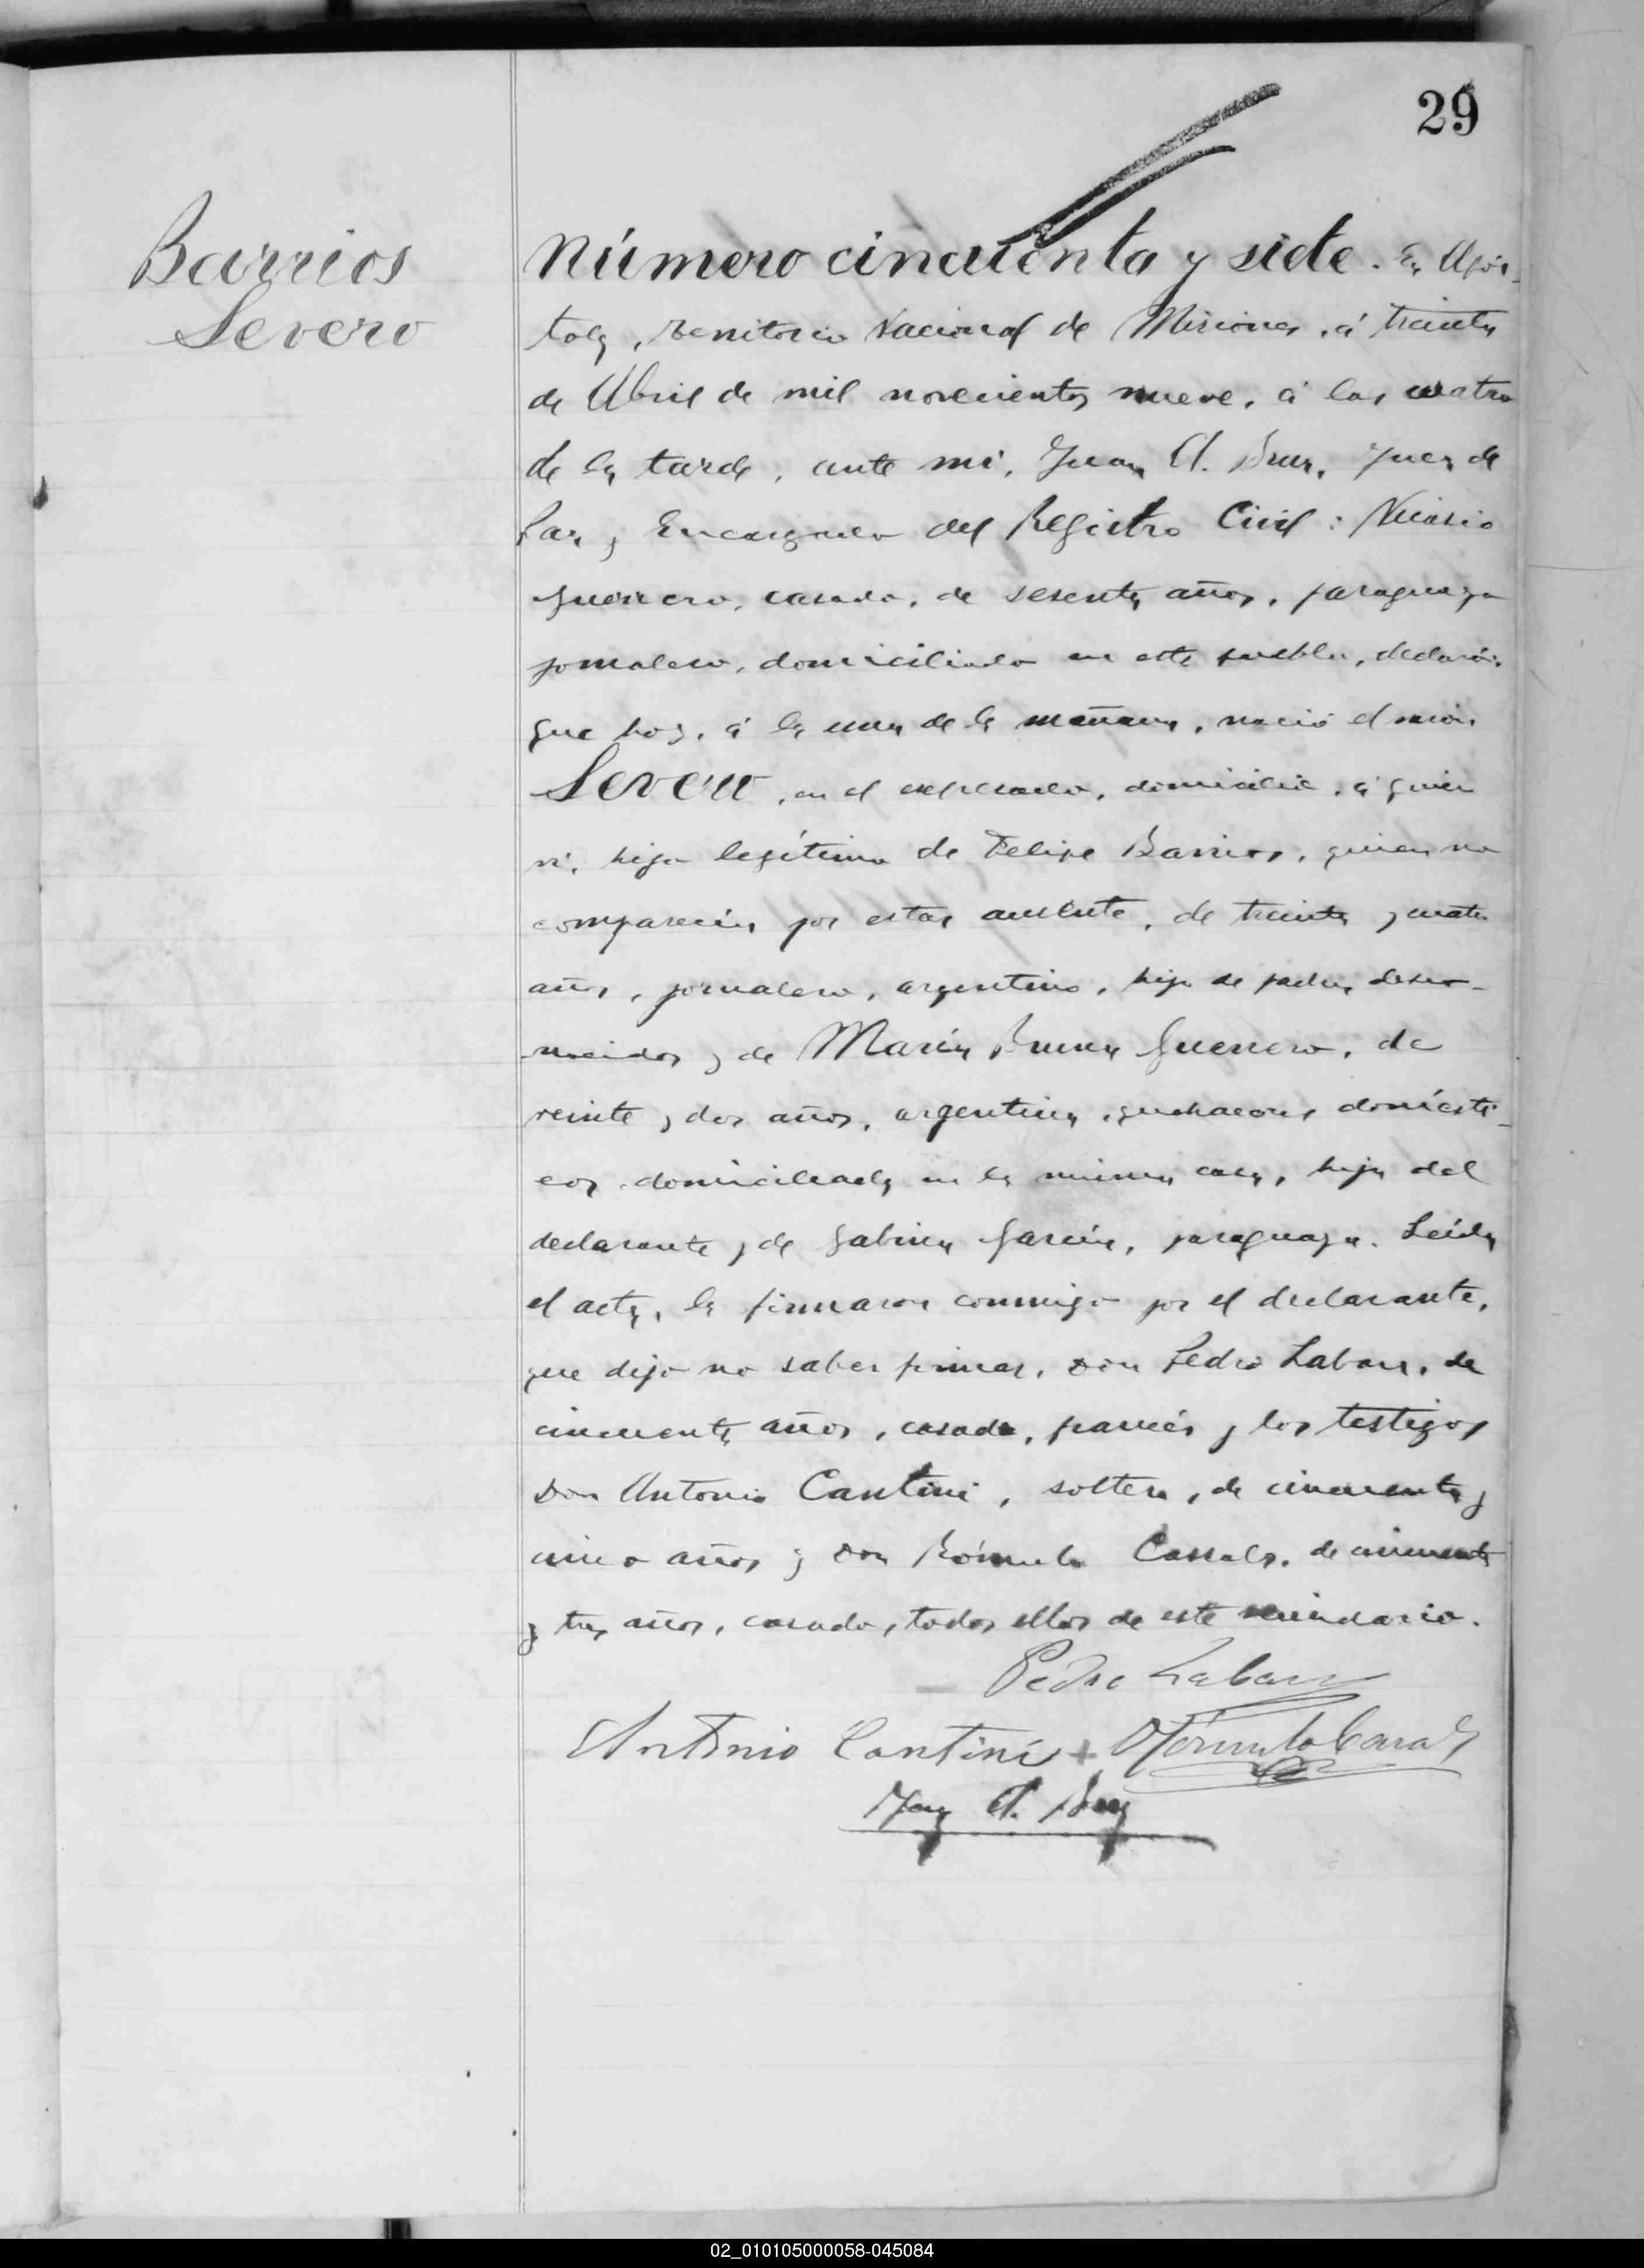 29
Barrios
Severo
Número cincuenta y siete. En Após-
toles, Territorio Nacional de Misiones, á treinta
de Abril de mil novecientos nueve, á las cuatro
de la tarde, ante mi, Juan A. Juez de
Paz y Encargado del Registro Civil: Nicasio
Guerrero, casado, de sesenta años, paraguayo
jornalero, domiciliado en este pueblo, declaró:
que hoy, á la una de la mañana, nació el varón
Severo, en el expresado domicilio, á quien
ví, hijo legítimo de Felipe Barrios, quien no
comparecía por estar ausente, de treinta y cuatro
años, jornalero, argentino, hijo de padres desco-
nocidos y de María Guerrero, de
veinte y dos años, argentina, quehaceres domésti-
cos domiciliada en la misma casa, hija del
declarante y de Sabina García, paraguaya. Leída
el acta, la firmaron conmigo por el declarante,
que dijo no saber firmar, Don Pedro Labarr, de
cincuenta años, casado, francés y los testigos
Don Antonio Cantini, soltero, de cincuenta y
cinco años y Don Rómulo de cincuenta
y tres años, casado, todos ellos de este vecindario.
Pedro Labarr
Antonio Cantini Rómulo
Juan A.
02_010105000058-045084